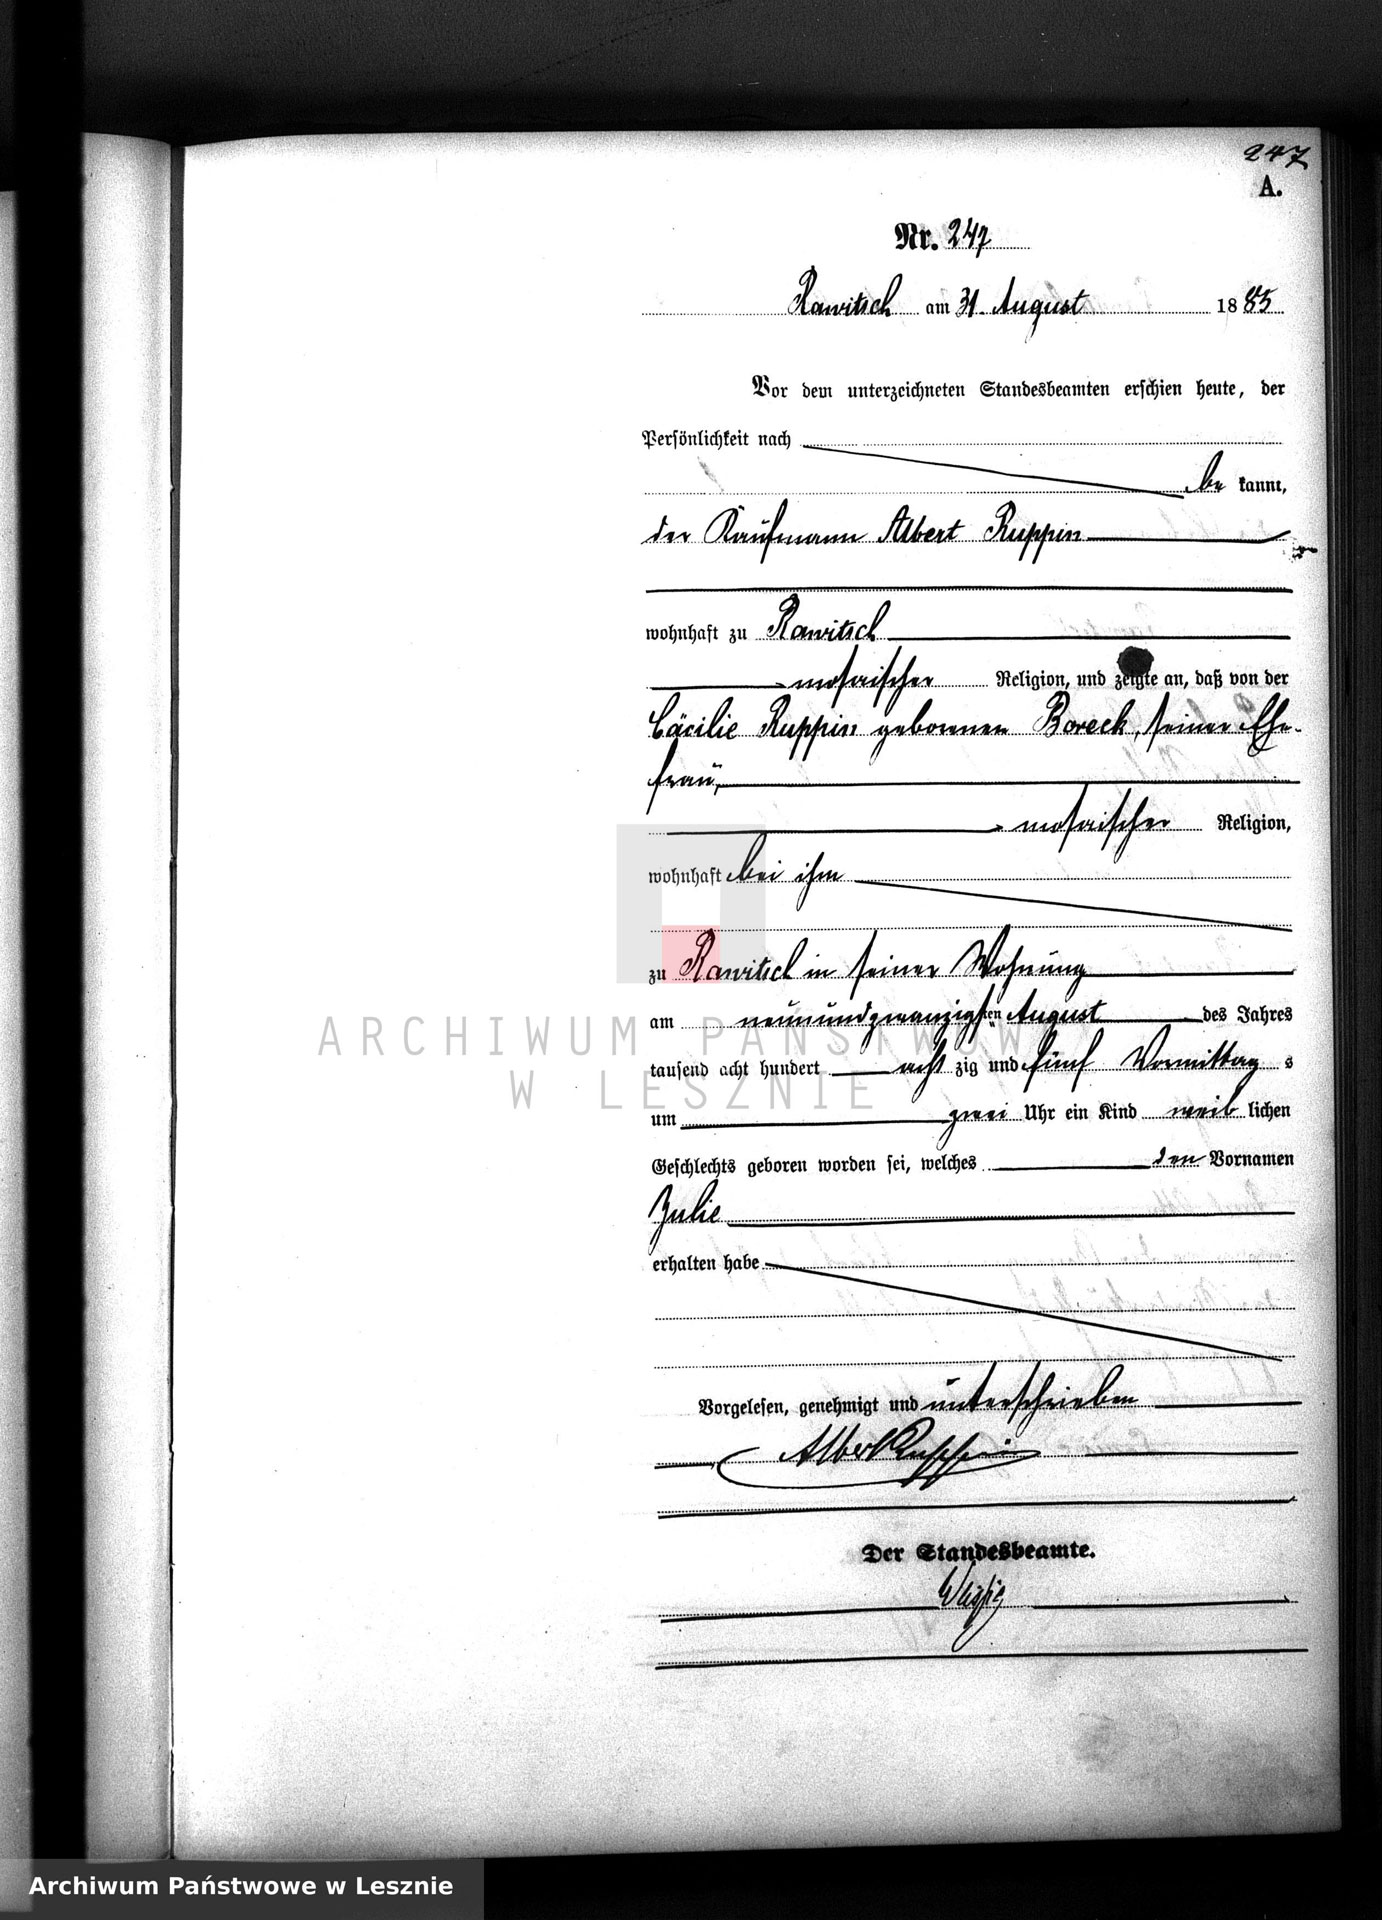 247
A.
Nr. 247
Rawitsch am 31. August 1885
Vor dem unterzeichneten Standesbeamten erschien heute, der
Persönlichkeit nach
be kannt,
der Kaufmann Albert Ruppin
wohnhaft zu Rawitsch
mosaischer Religion, und zeigte an, daß von der
Cäcilie Ruppin geborenen Boreck, seiner Ehe-
frau,
mosaischer Religion,
wohnhaft bei ihm
zu Rawitsch in seiner Wohnung
am neunundzwanzigsten August des Jahres
tausend acht hundert acht zig und fünf Vormittag s
um zwei Uhr ein Kind weib lichen
Geschlechts geboren worden sei, welches den Vornamen
Julie
erhalten habe
Vorgelesen, genehmigt und unterschrieben
Albert Ruppin
Der Standesbeamte.
ARCHIWUM PAŃSTWOWE
W LESZNIE
Archiwum Państwowe w Lesznie